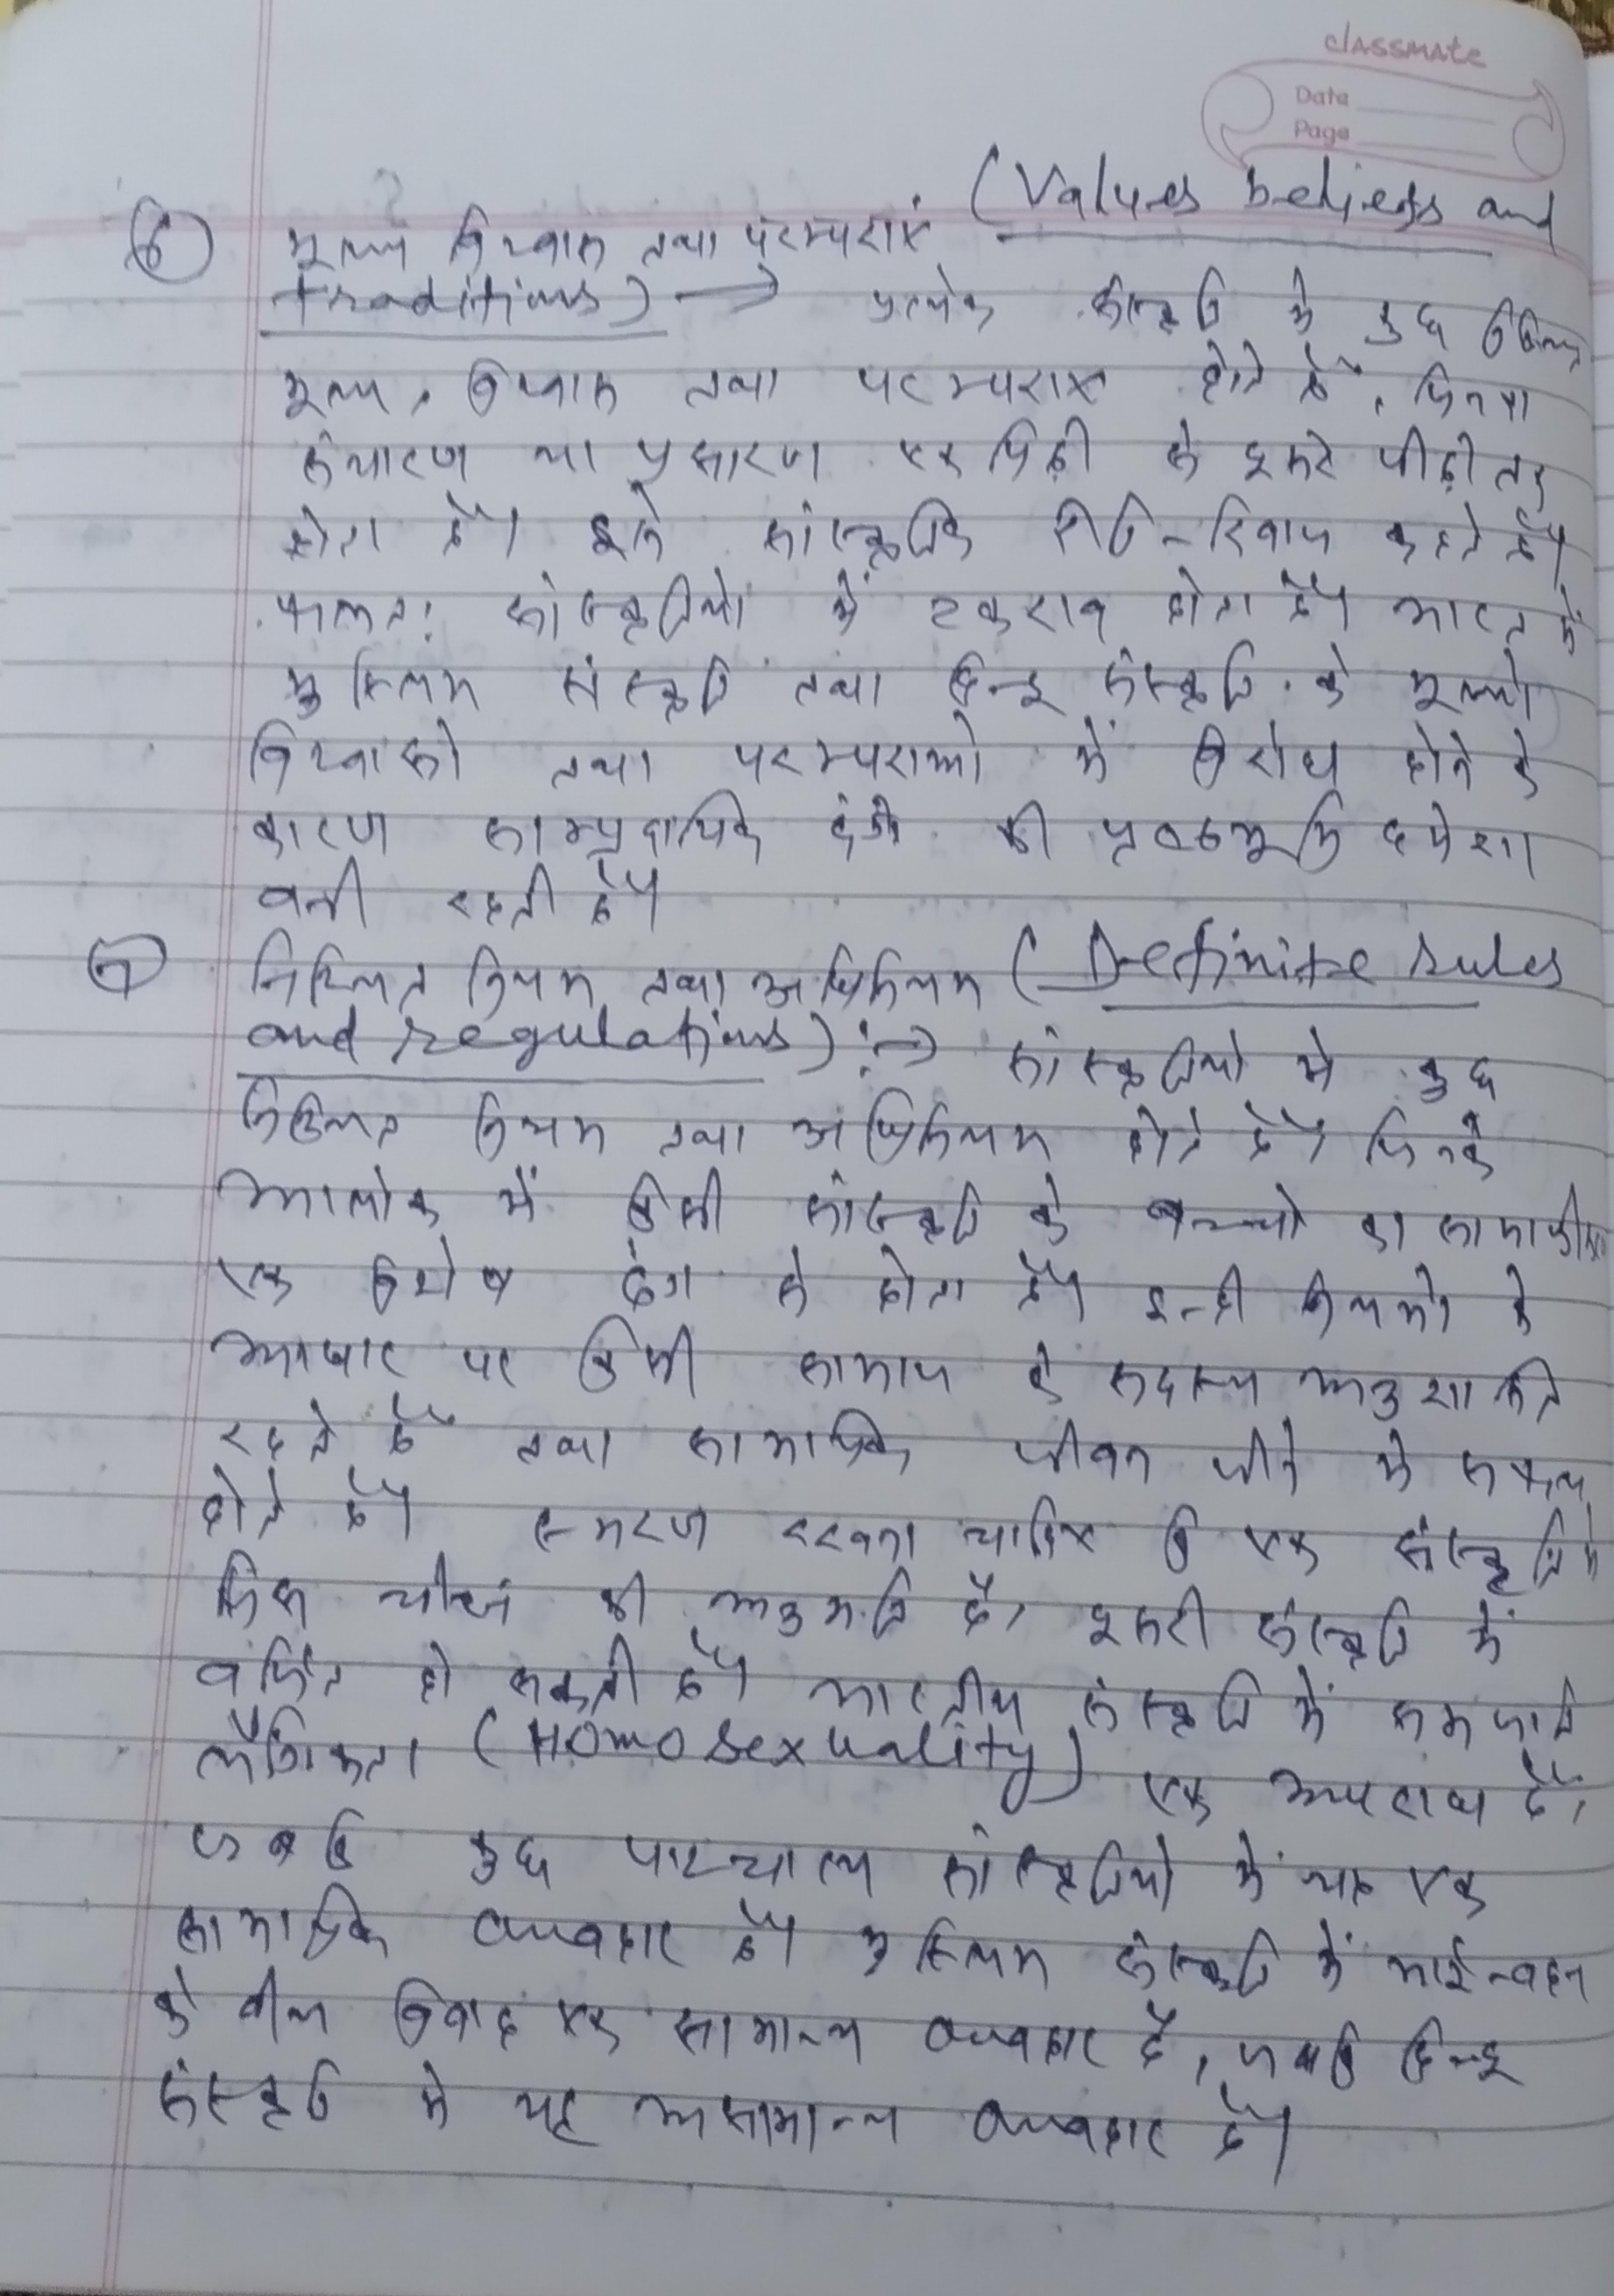 classmate
Date
Page
(Values beliefs and
⑥ मूल्य विश्वास तथा परम्पराएं
traditions) → प्रत्येक संस्कृति में कुछ विभिन्न
मूल्य, विश्वास तथा परम्पराएं होते हैं, जिनका
संचारण या प्रसारण एक पिढ़ी से दूसरे पीढ़ी तक
होता है। इसे सांस्कृतिक रीति-रिवाज कहते हैं।
फलतः सांस्कृतियों में टकराव होता है। भारत में
मुस्लिम संस्कृति तथा हिन्दू संस्कृति के मूल्यों
विश्वासों तथा परम्पराओं में विरोध होने के
कारण साम्प्रदायिक दंगे की पृष्ठभूमि हमेशा
बनी रहती है।
⑦ निश्चित नियम तथा अधिनियम (Definite rules
and regulations) :→ सांस्कृतियों में कुछ
निश्चित नियम तथा अधिनियम होते है, जिनके
आलोक में किसी सांस्कृति के बच्चों का
एक विशेष ढंग से होता है। इन्ही नियमों के
आधार पर किसी सामाज के सदस्य अनुशासित
रहते हैं तथा सामाजिक जीवन जीने में सफल
होते है। स्मरण रखना चाहिए कि एक संस्कृति में
जिस चीज की अनुमति है, दूसरी संस्कृति में
वर्जित हो सकती है। भारतीय संस्कृति में समजाति
लैंगिकता (Homosexuality) एक अपराध है,
जबकि कुछ पाश्चात्य सांस्कृतियों में यह एक
सामाजिक व्यवहार है। मुस्लिम संस्कृति में भाई-बहन
के बीच विवाह एक सामान्य व्यवहार है, जबकि हिन्दू
संस्कृति में यह असामान्य व्यवहार है।